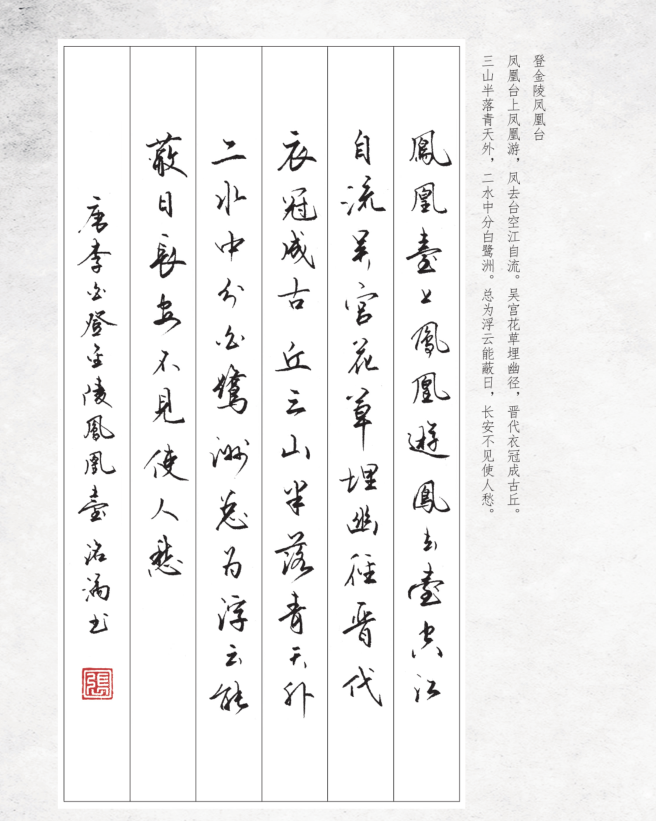 登金陵凤凰台
凤凰台上凤凰游，凤去台空江自流。吴宫花草埋幽径，晋代衣冠成古丘。
三山半落青天外，二水中分白鹭洲。总为浮云能蔽日，长安不见使人愁。
鳳凰臺上鳳凰遊鳳去臺空江
自流吴宫花草埋幽徑晋代
衣冠成古丘三山半落青天外
二水中分白鷺洲总为浮云能
蔽日長安不見使人愁
唐李白登金陵鳳凰臺书
張